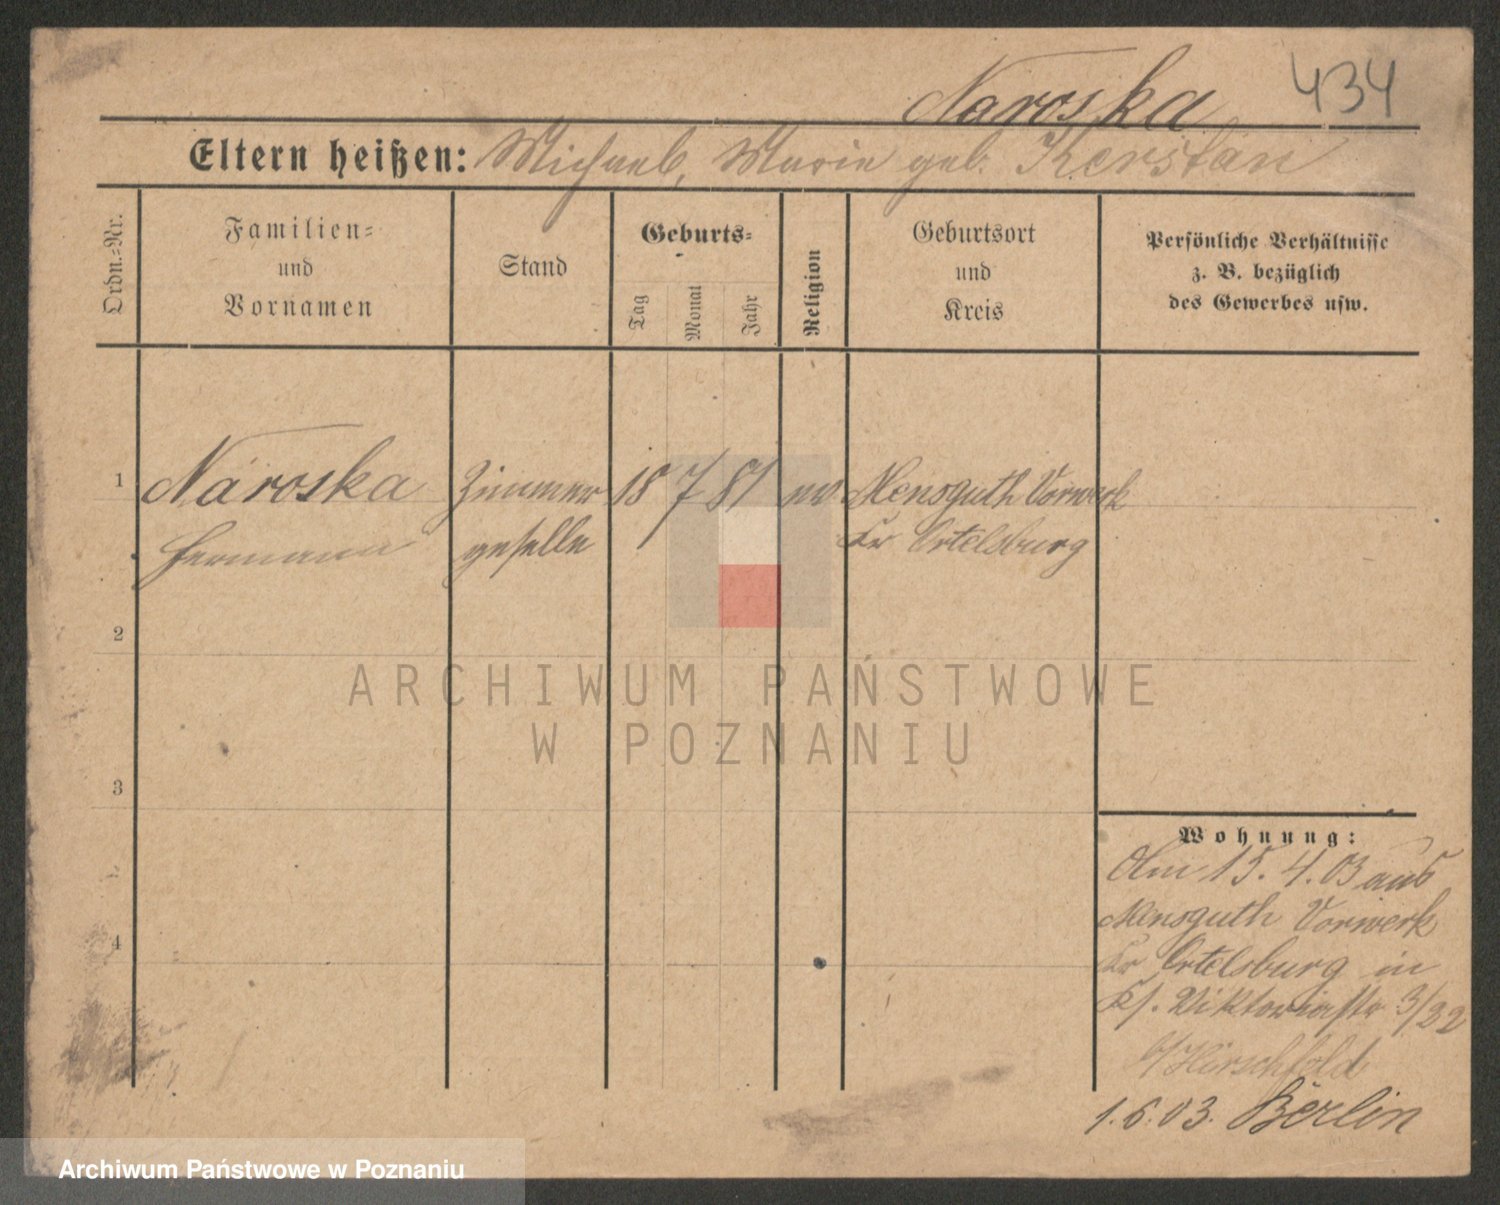 Naroska 434
Eltern heißen: Michael, Marie geb. Kerstan
Ordn.=Nr.
Familien=
und
Vornamen
Stand
Geburts=
Tag
Monat
Jahr
Religion
Geburtsort
und
Kreis
Persönliche Verhältnisse
z. B. bezüglich
des Gewerbes usw.
1 Naroska Zimmer 18 7 81 ev Mensguth Vorwerk
Hermann geselle Kr Ortelsburg
2
3
4
Wohnung:
Am 15. 4. 03 aus
Mensguth Vorwerk
Kr Ortelsburg in
Viktoriastr 3/22
b/Hirschfeld
1. 6. 03. Berlin
ARCHIWUM PAŃSTWOWE
W POZNANIU
Archiwum Państwowe w Poznaniu